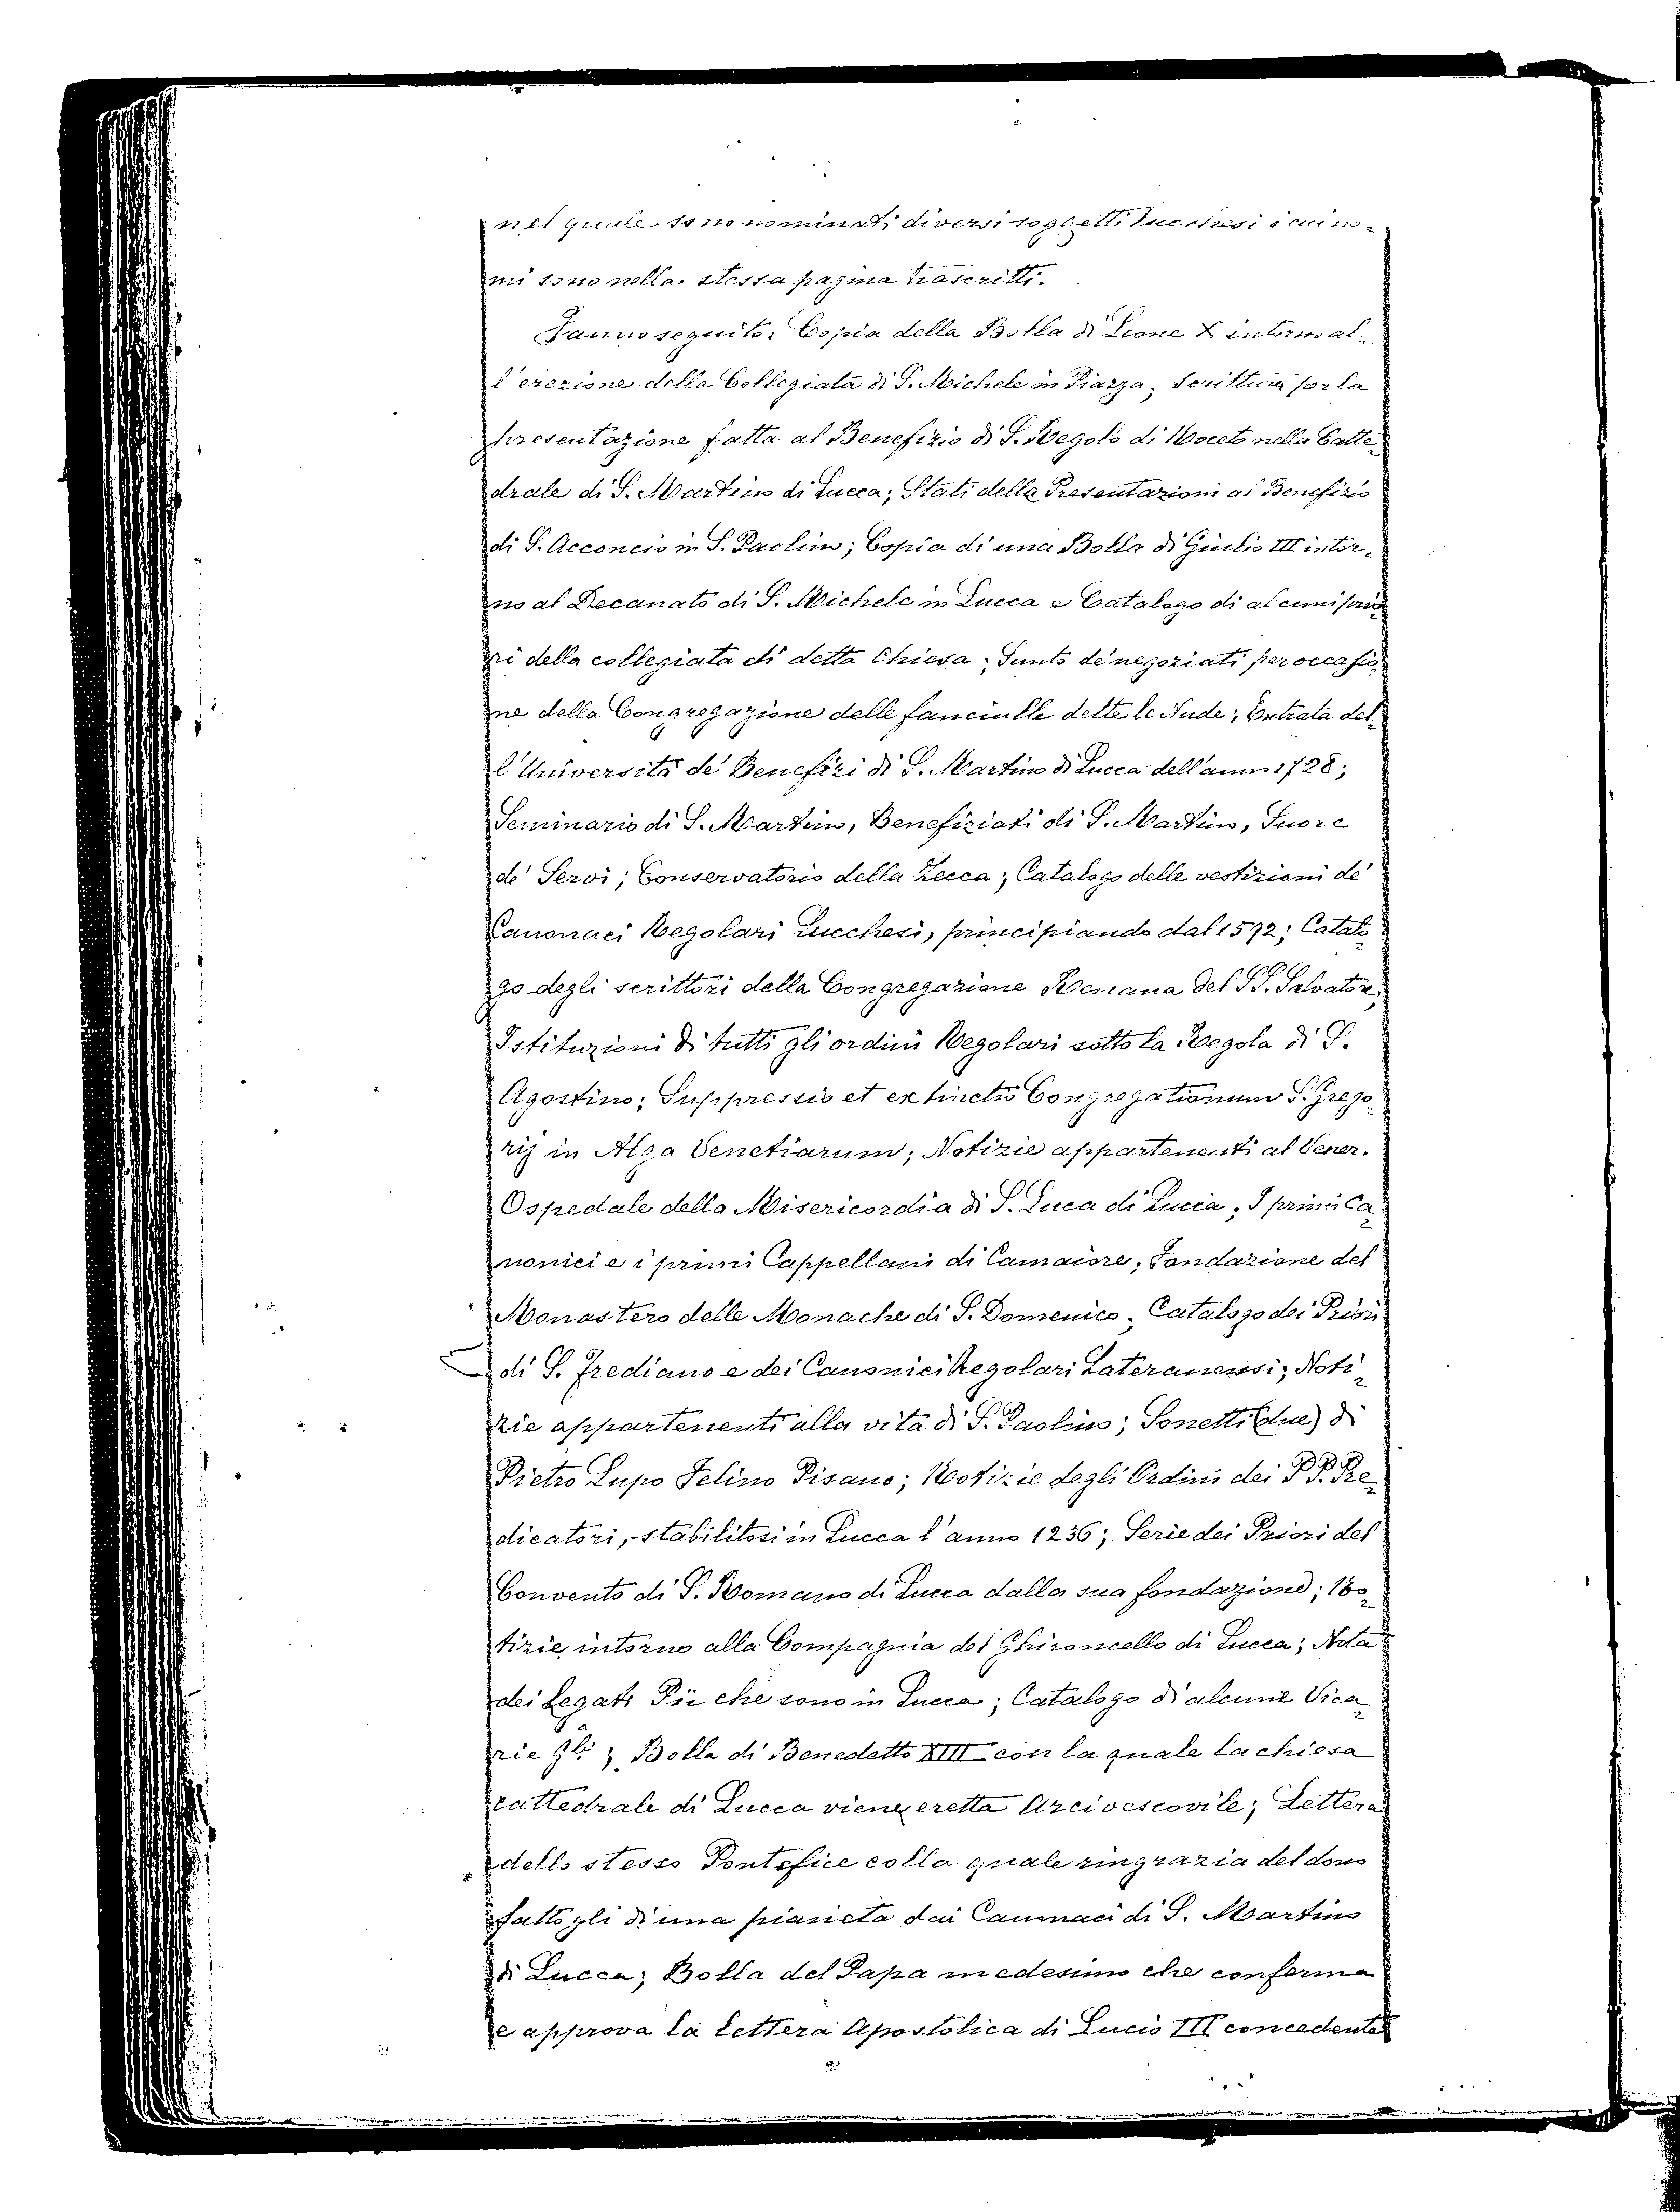 nel quale sono nominati diversi soggetti Lucchesi i cui no-
mi sono nella stessa pagina trascritti.
Fanno seguito: Copia della Bolla di Leone X intorno al-
l'erezione della Collegiata di S. Michele in Piazza; Scrittura per la
presentazione fatta al Benefizio di S. Regolo di Noceto nella Catte-
drale di S. Martino di Lucca; Stati delle Presentazioni al Benefizio
di S. Acconcio in S. Paolino; Copia di una Bolla di Giulio III intor-
no al Decanato di S. Michele in Lucca e Catalogo di alcuni prio-
ri della collegiata di detta Chiesa; Sunto de' negoziati per occasio-
ne della Congregazione delle fanciulle dette le Nude; Entrata del-
l'Università de' Benefizi di S. Martino di Lucca dell'anno 1728;
Seminario di S. Martino, Benefiziati di S. Martino, Suore
de' Servi; Conservatorio della Zecca; Catalogo delle vestizioni de'
Canonaci Regolari Lucchesi, principiando dal 1592; Catalo-
go degli scrittori della Congregazione Renana del SS. Salvatore;
Istituzioni di tutti gli ordini Regolari sotto la Regola di S.
Agostino; Suppressio et extinctio Congregationum S. Grego-
rij in Alga Venetiarum; Notizie appartenenti al Vener.
Ospedale della Misericordia di S. Luca di Lucca; I primi Ca-
nonici e i primi Cappellani di Camaiore; Fondazione del
Monastero delle Monache di S. Domenico; Catalogo dei Priori
di S. Frediano e dei Canonici Regolari Lateranensi; Noti-
zie appartenenti alla vita di S. Paolino; Sonetti (due) di
Pietro Lupo Felino Pisano; Notizie degli Ordini dei P.P. Pre-
dicatori, stabilitosi in Lucca l'anno 1236; Serie dei Priori del
Convento di S. Romano di Lucca dalla sua fondazione; No-
tizie intorno alla Compagnia del Ghironcello di Lucca; Nota
dei Legati Pii che sono in Lucca; Catalogo di alcune Vica-
rie Gli; Bolla di Benedetto XIII con la quale la chiesa
cattedrale di Lucca viene eretta Arcivescovile; Lettera
dello stesso Pontefice colla quale ringrazia del dono
fattogli di una pianeta dai Canonaci di S. Martino
di Lucca; Bolla del Papa medesimo che conferma
e approva la lettera Apostolica di Lucio III concedente